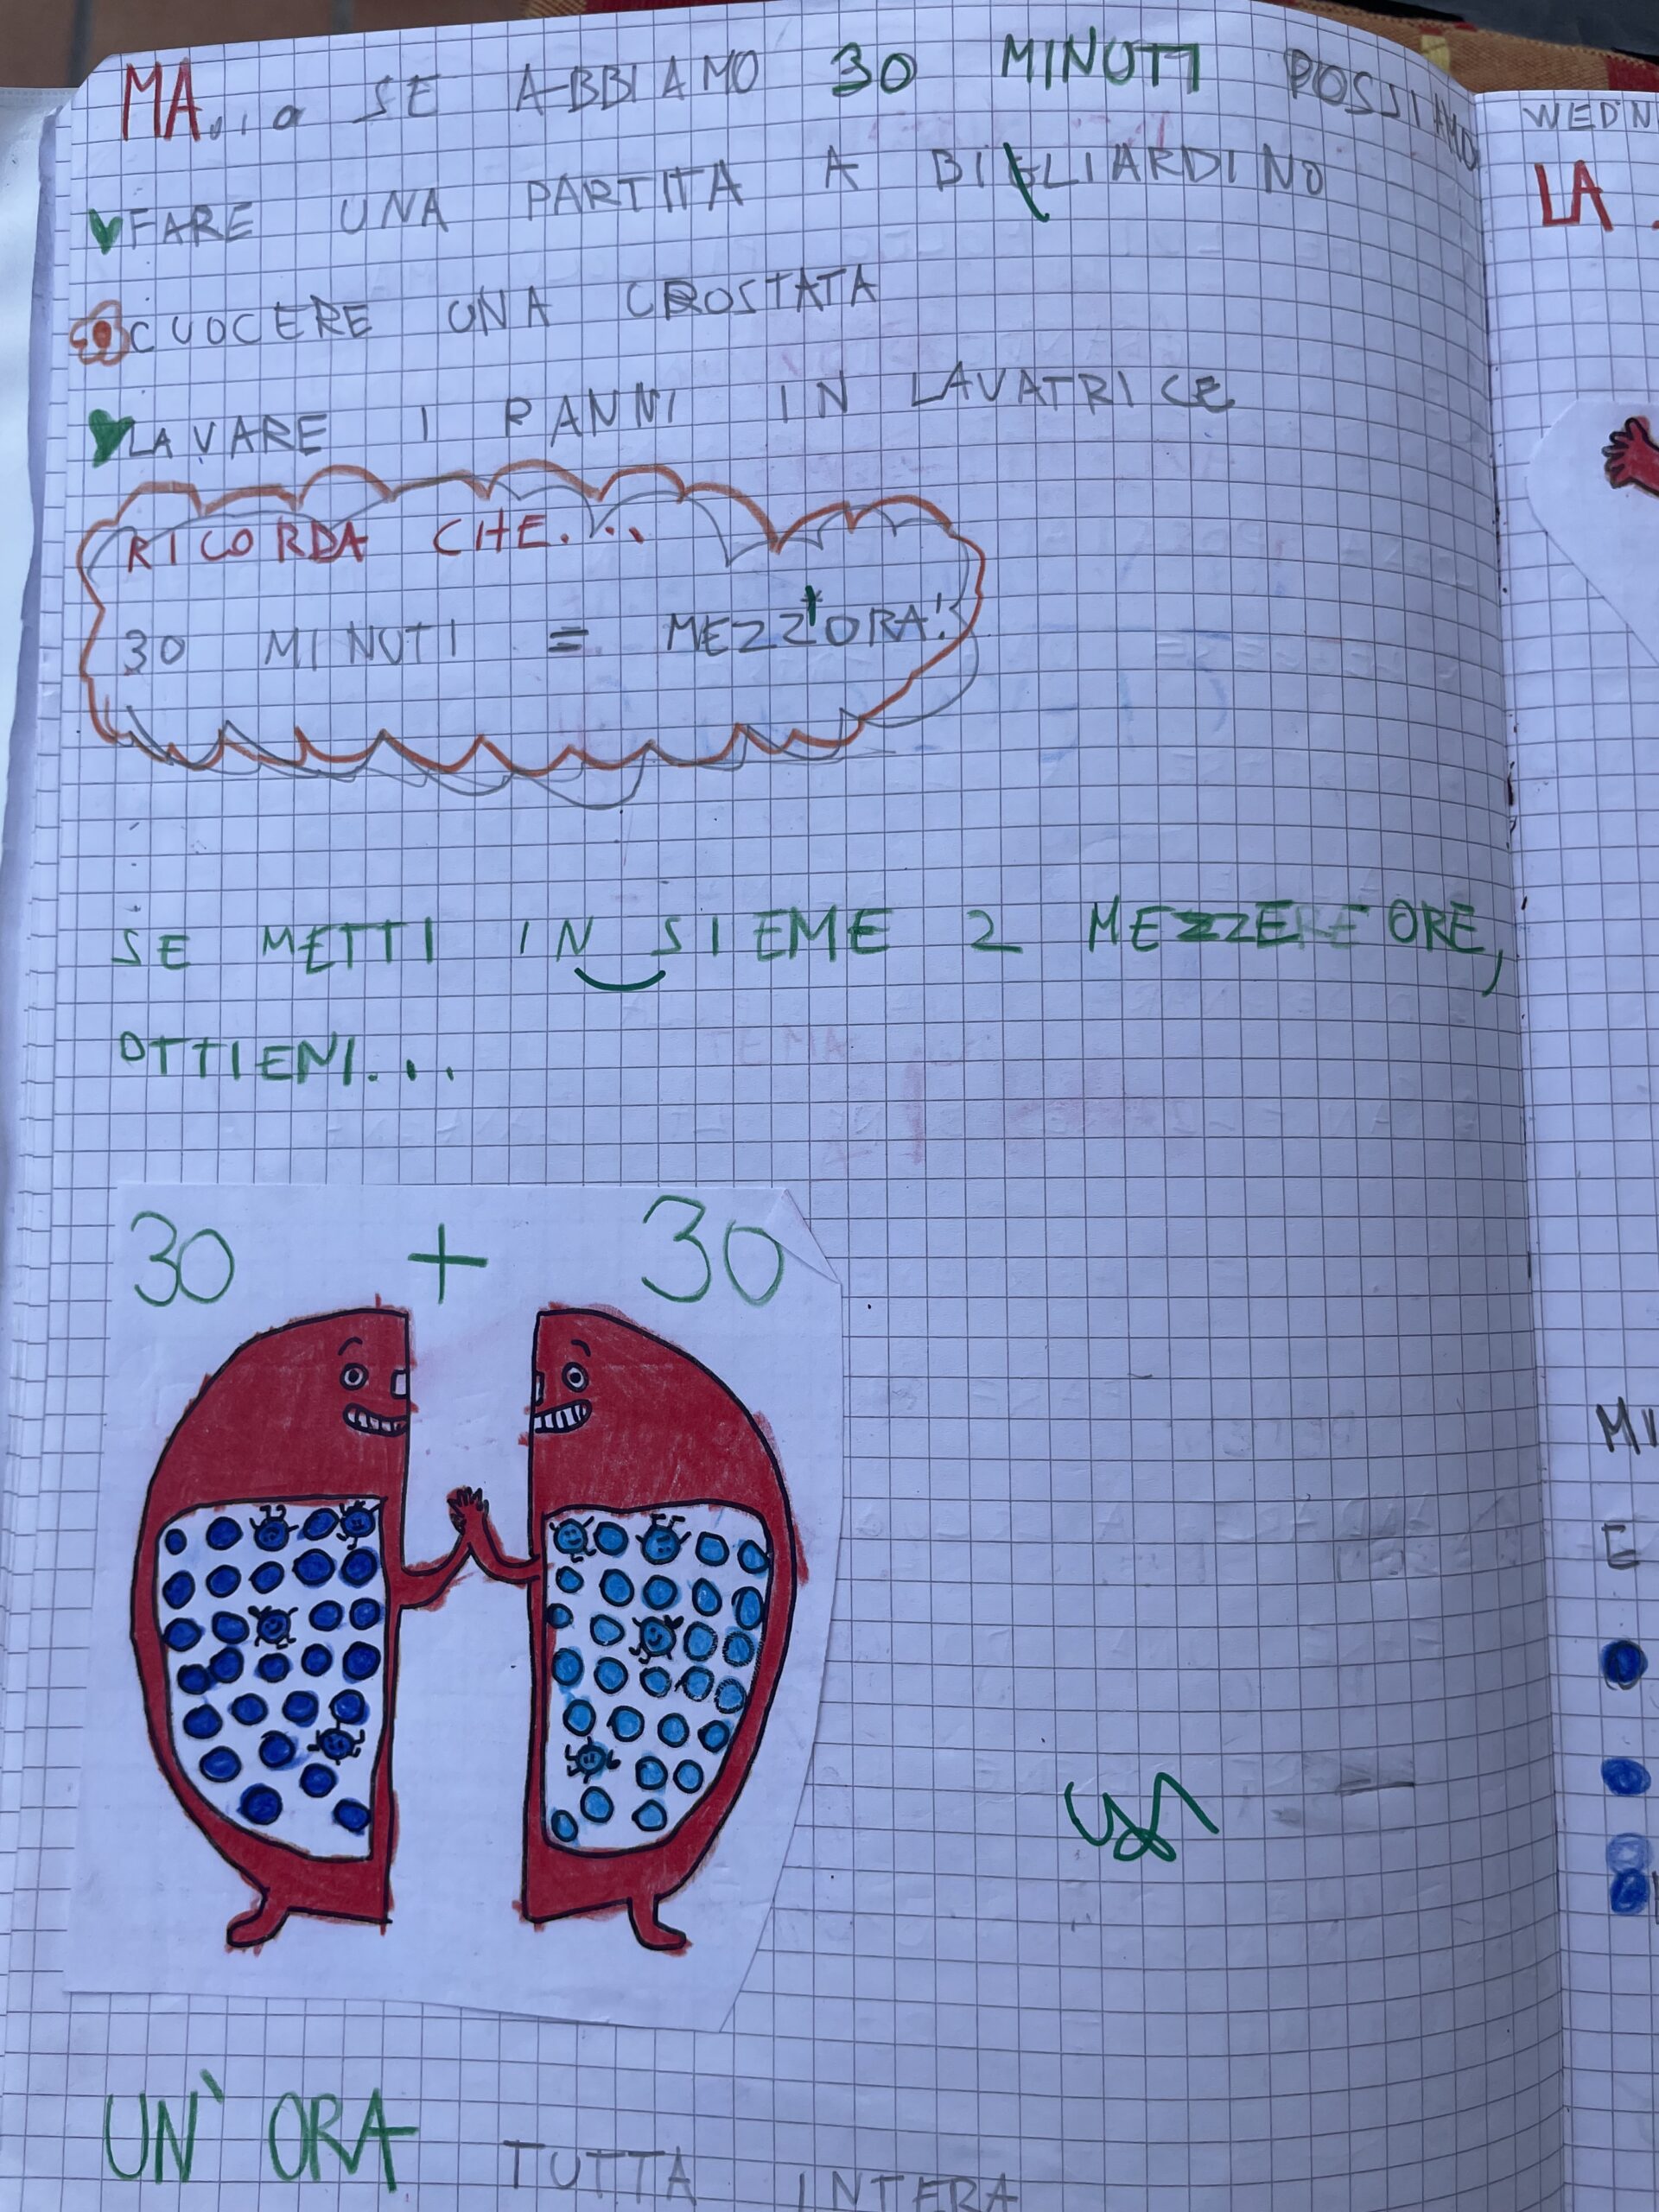 MA... SE ABBIAMO 30 MINUTI POSSIAMO
FARE UNA PARTITA A BIGLIARDINO
CUOCERE UNA CROSTATA
LAVARE I PANNI IN LAVATRICE
RICORDA CHE...
30 MINUTI = MEZZ'ORA!
SE METTI IN SIEME 2 MEZZE ORE,
OTTIENI...
30 + 30
UN' ORA TUTTA INTERA
WEDN
LA
MI
E